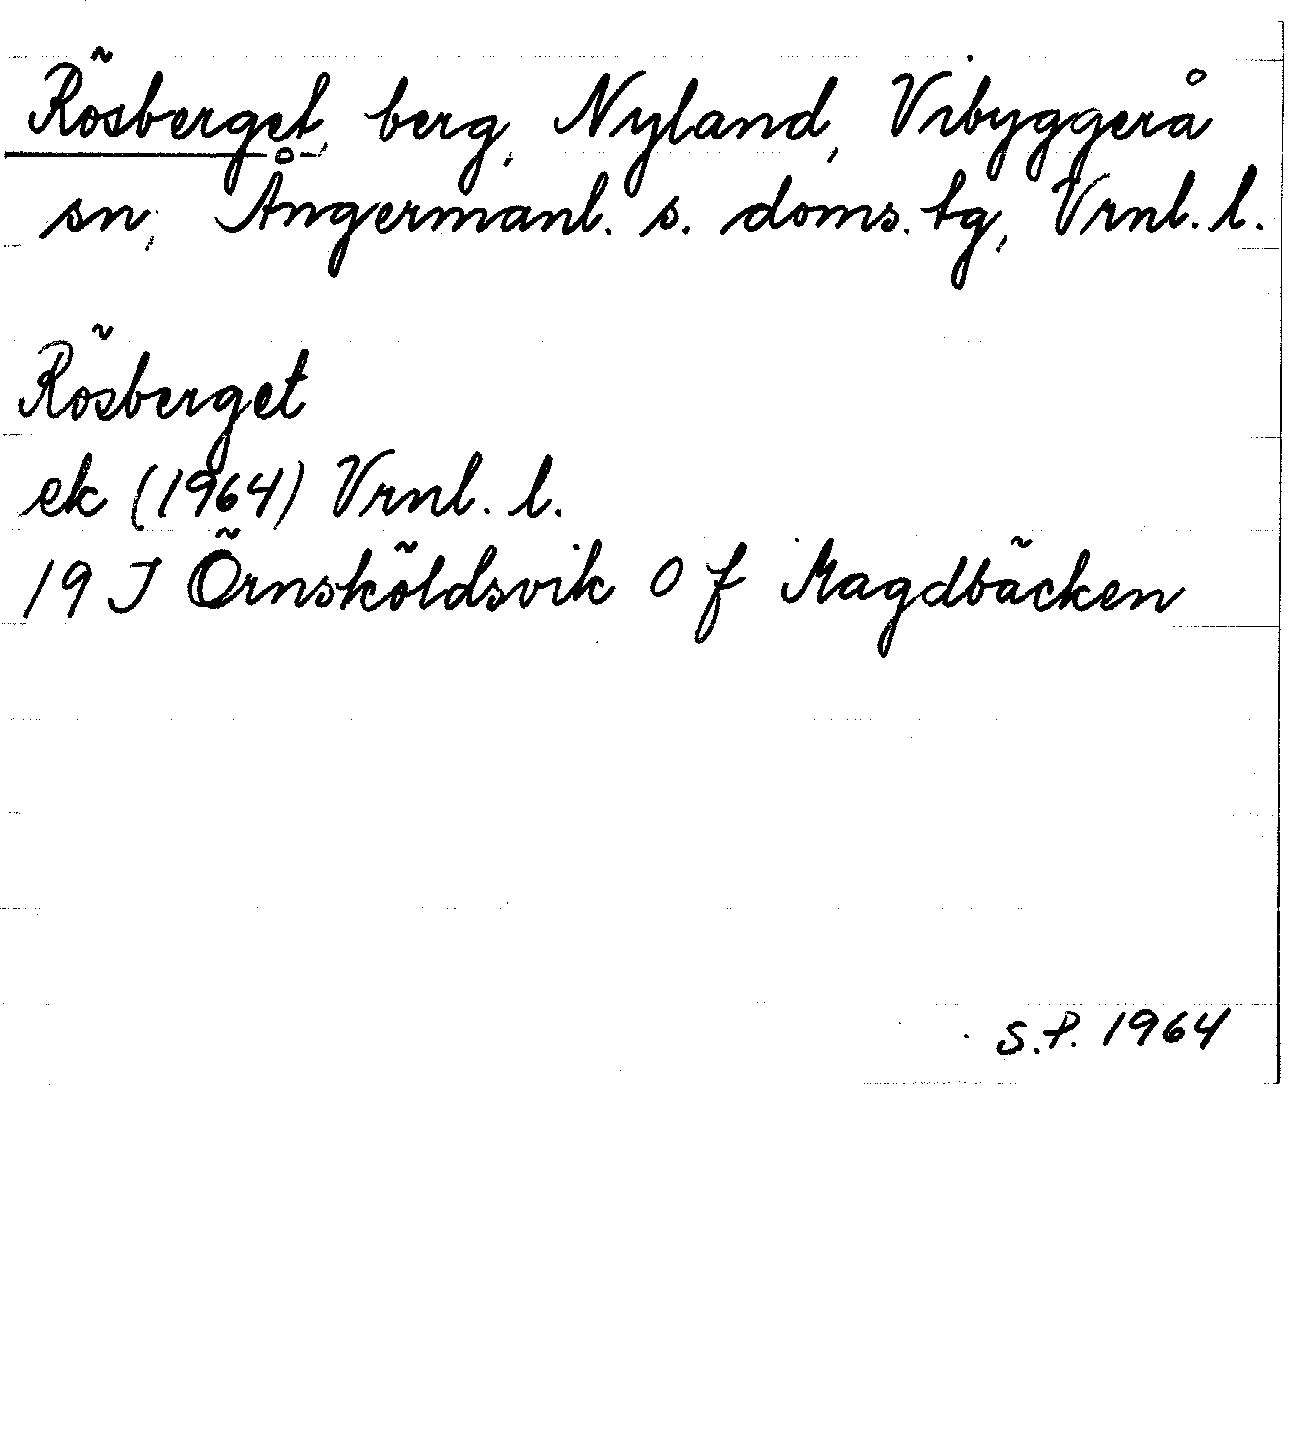 Rösberget, berg, Nyland, Vibyggerå
sn, Ångermanl. s. doms. tg, Vrnl. l.
Rösberget
ek (1964) Vrnl. l.
19 J Örnsköldsvik O f Magdbäcken
S.P. 1964